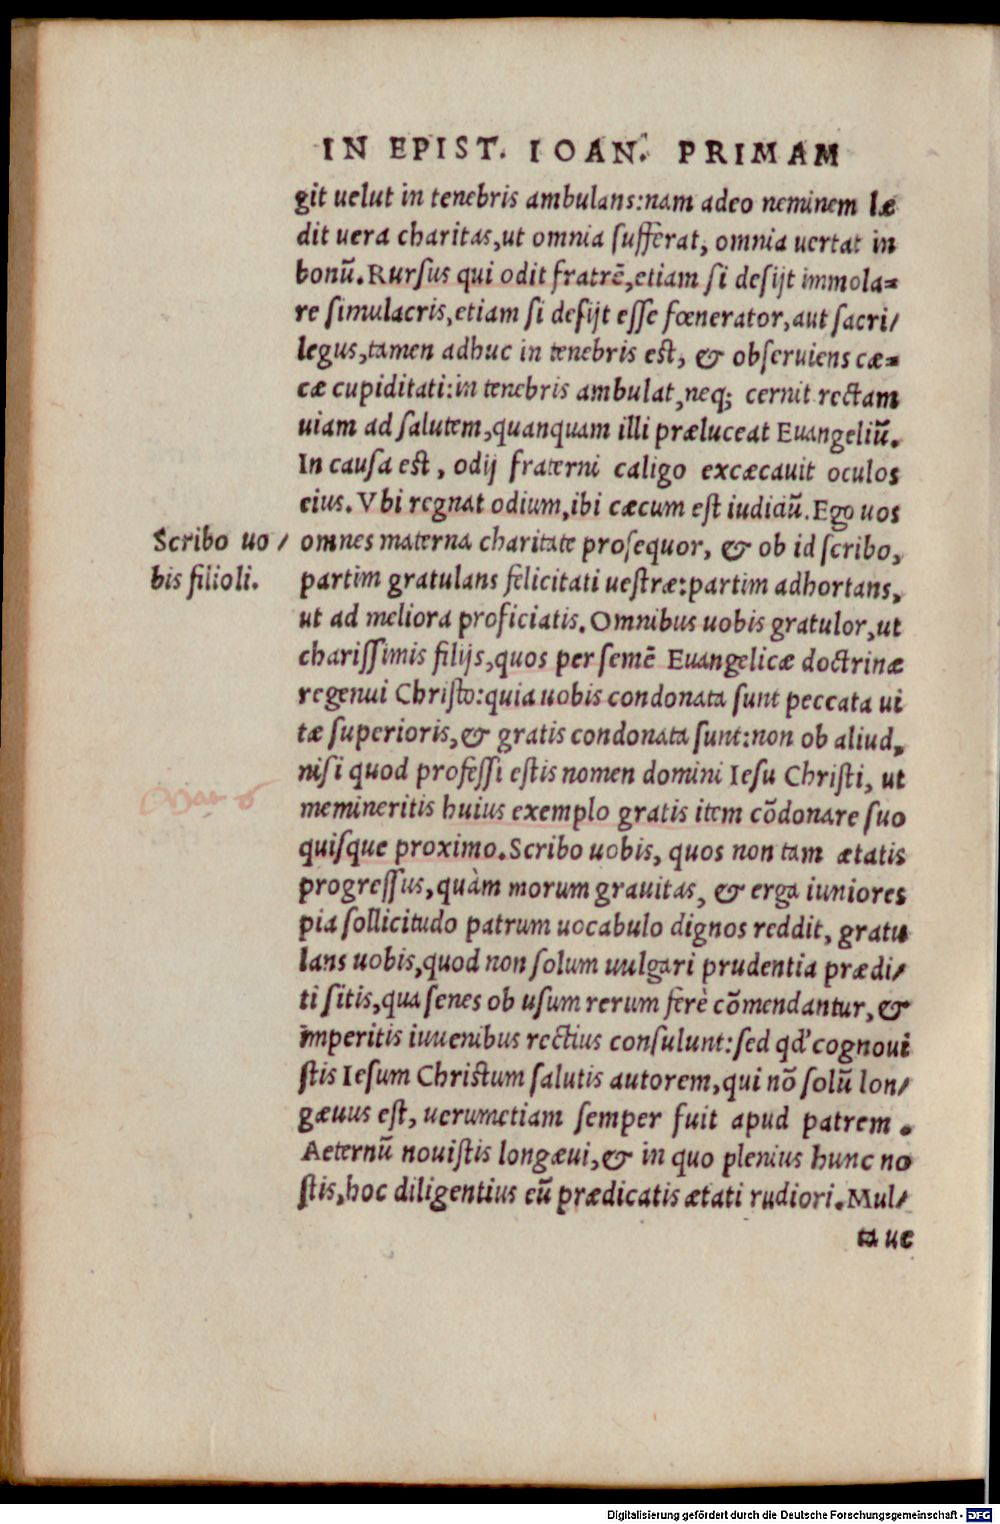 IN EPIST. IOAN. PRIMAM
git uelut in tenebris ambulans:nam adeo neminem læ
dit uera charitas,ut omnia sufferat, omnia uertat in
bonū. Rursus qui odit fratrē,etiam si desijt immola=
re simulacris,etiam si desijt esse fœnerator,aut sacri/
legus,tamen adhuc in tenebris est, & obseruiens cæ=
cæ cupiditati:in tenebris ambulat,neq; cernit rectam
uiam ad salutem,quanquam illi præluceat Euangeliū.
In causa est, odij fraterni caligo excæcauit oculos
eius. Vbi regnat odium,ibi cæcum est iudiciū. Ego uos
Scribo uo/
bis filioli.
omnes materna charitate prosequor, & ob id scribo,
partim gratulans felicitati uestræ:partim adhortans,
ut ad meliora proficiatis. Omnibus uobis gratulor,ut
charissimis filijs,quos per semē Euangelicæ doctrinæ
regenui Christo:quia uobis condonata sunt peccata ui
tæ superioris,& gratis condonata sunt:non ob aliud,
nisi quod professi estis nomen domini Iesu Christi, ut
memineritis huius exemplo gratis item cōdonare suo
quisque proximo. Scribo uobis, quos non tam ætatis
progressus,quàm morum grauitas, & erga iuniores
pia sollicitudo patrum uocabulo dignos reddit, gratu
lans uobis,quod non solum uulgari prudentia prædi/
ti sitis,qua senes ob usum rerum ferè cōmendantur, &
imperitis iuuenibus rectius consulunt:sed qd' cognoui
stis Iesum Christum salutis autorem,qui nō solū lon/
gæuus est, uerumetiam semper fuit apud patrem.
Aeternū nouistis longæui,& in quo plenius hunc no
stis,hoc diligentius eū prædicatis ætati rudiori. Mul/
ta ue
Digitalisierung gefördert durch die Deutsche Forschungsgemeinschaft - DFG